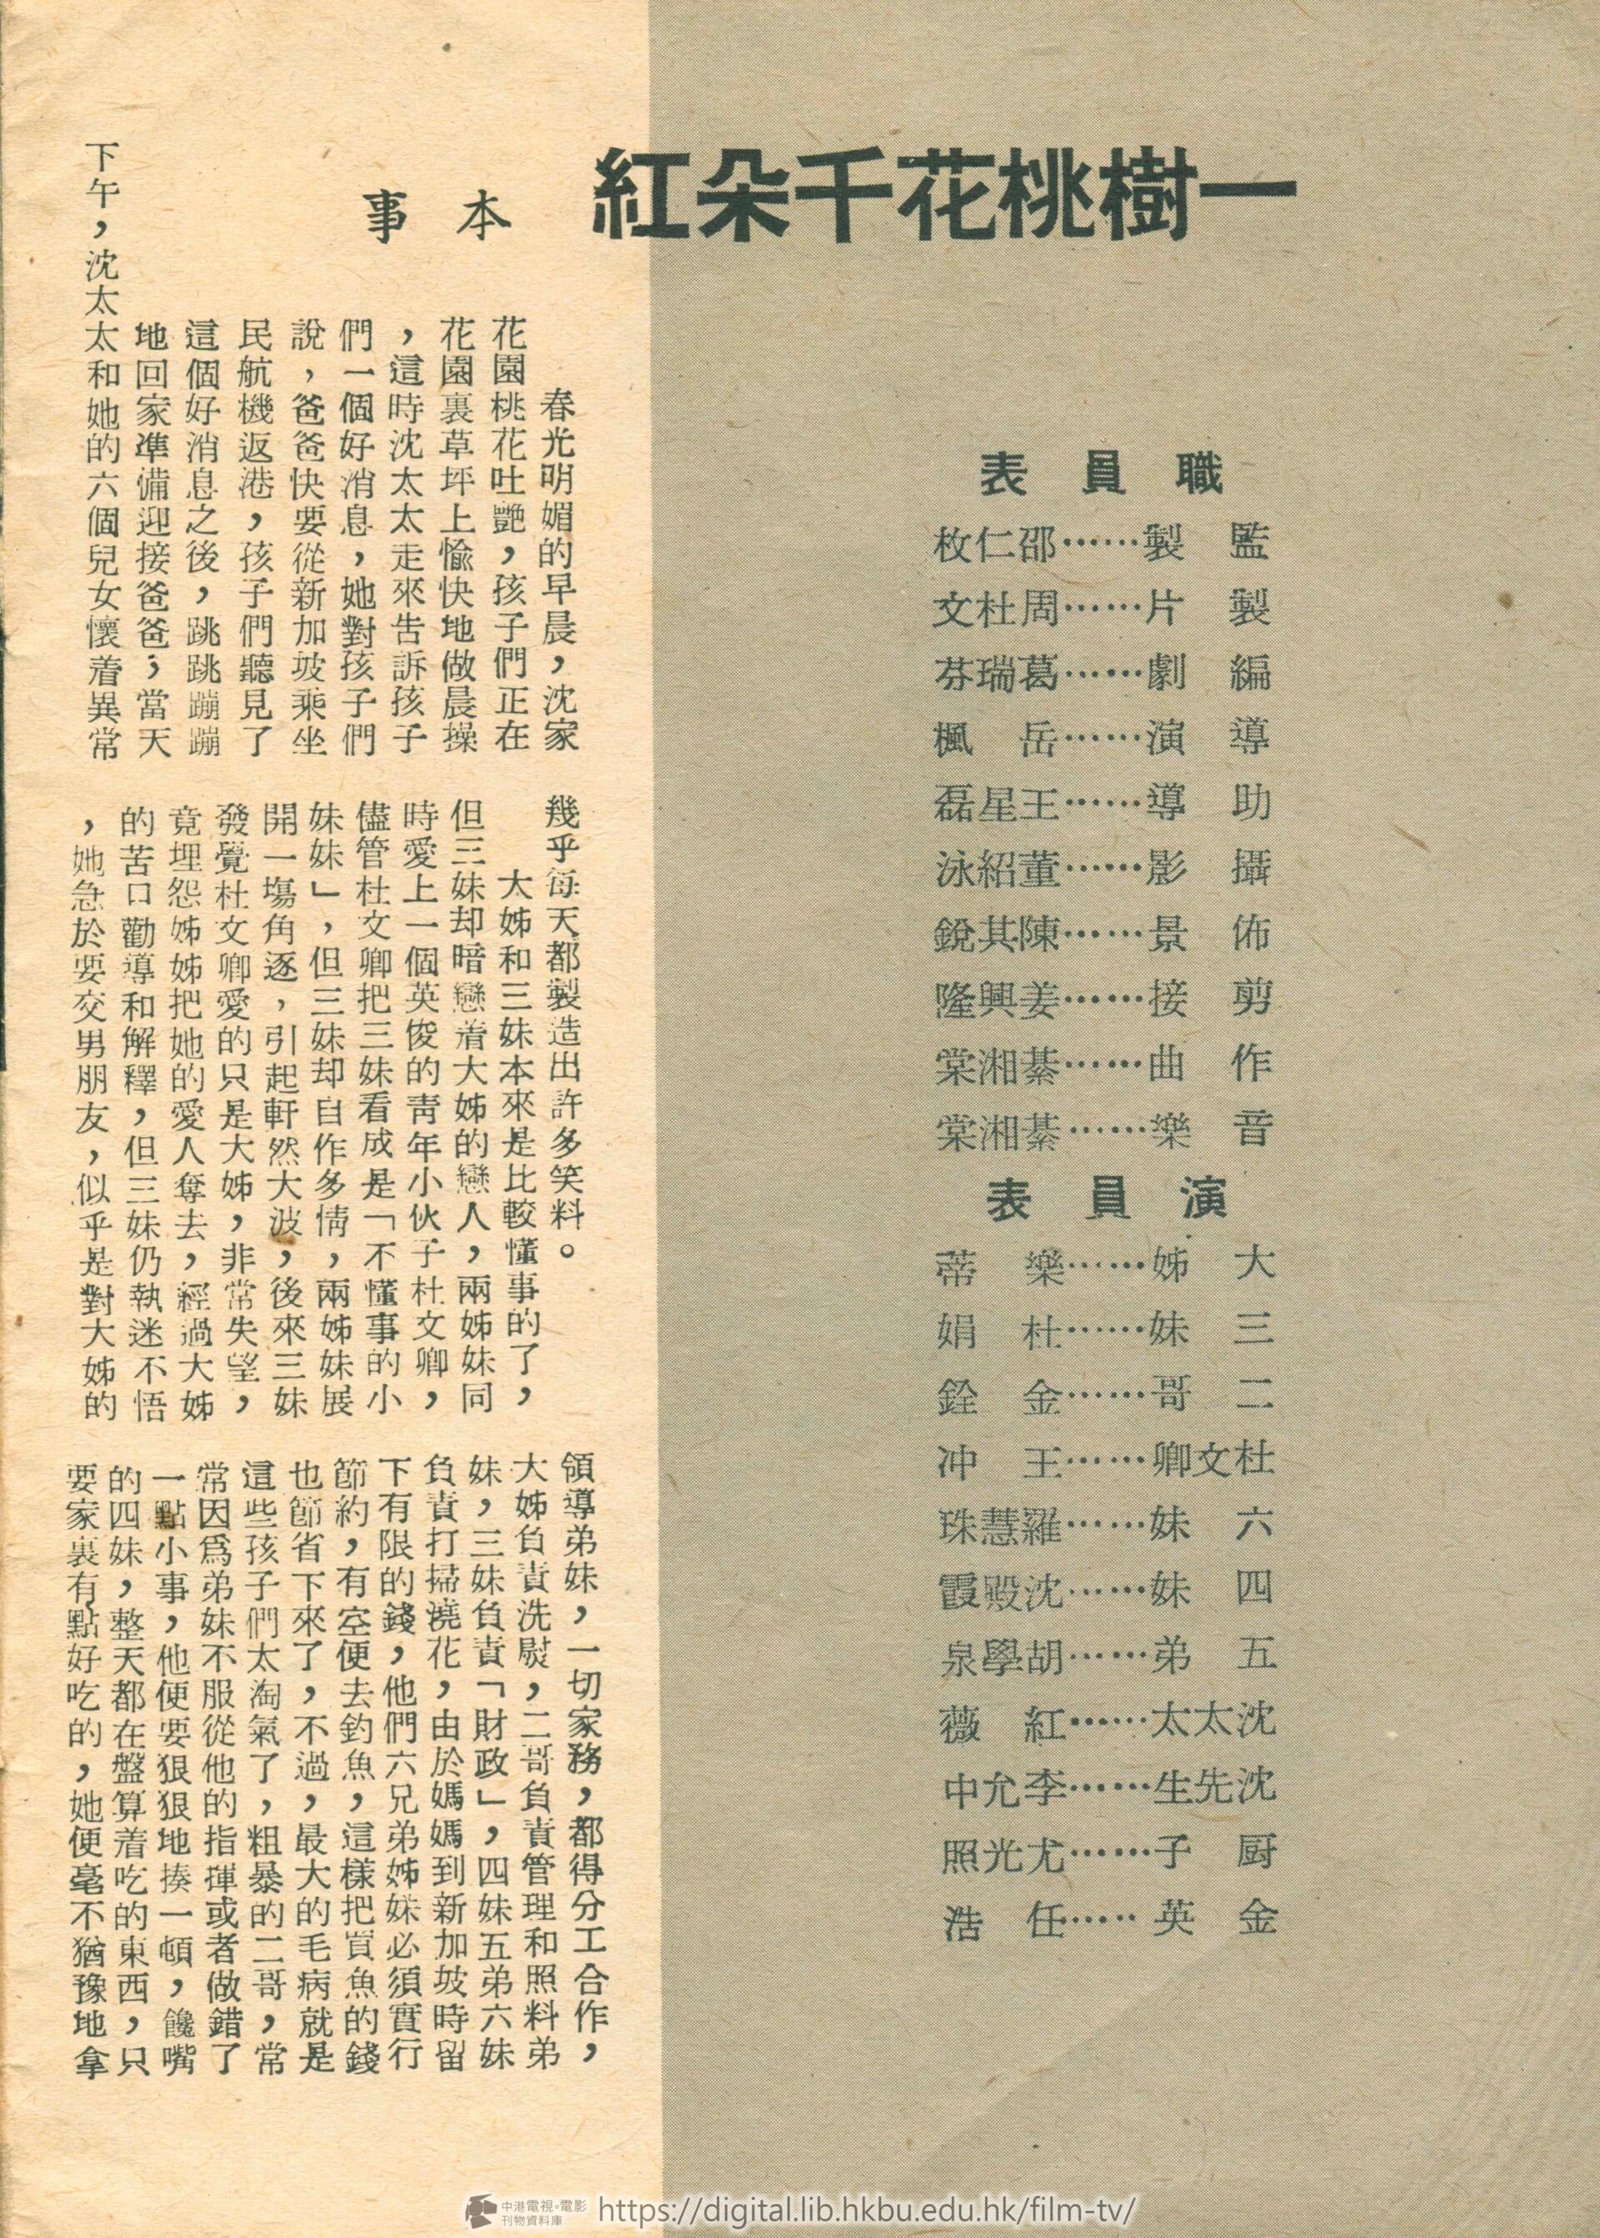 一樹桃花千朵紅
本事
職員表
監製……邵仁枚
製片……周杜文
編劇……葛瑞芬
導演……岳楓
助導……王星磊
攝影……董紹泳
佈景……陳其銳
剪接……姜興隆
作曲……綦湘棠
音樂……綦湘棠
演員表
大姊……樂蒂
三妹……杜娟
二哥……金銓
杜文卿……王冲
六妹……羅慧珠
四妹……沈殿霞
五弟……胡學泉
沈太太……紅薇
沈先生……李允中
厨子……尤光照
金英……任浩
春光明媚的早晨，沈家
花園桃花吐艷，孩子們正在
花園裏草坪上愉快地做晨操
，這時沈太太走來告訴孩子
們一個好消息，她對孩子們
說，爸爸快要從新加坡乘坐
民航機返港，孩子們聽見了
這個好消息之後，跳跳蹦蹦
地回家準備迎接爸爸；當天
下午，沈太太和她的六個兒女懷着異常
幾乎每天都製造出許多笑料。
大姊和三妹本來是比較懂事的了，
但三妹却暗戀着大姊的戀人，兩姊妹同
時愛上一個英俊的青年小伙子杜文卿，
儘管杜文卿把三妹看成是「不懂事的小
妹妹」，但三妹却自作多情，兩姊妹展
開一塲角逐，引起軒然大波，後來三妹
發覺杜文卿愛的只是大姊，非常失望，
竟埋怨姊姊把她的愛人奪去，經過大姊
的苦口勸導和解釋，但三妹仍執迷不悟
，她急於要交男朋友，似乎是對大姊的
領導弟妹，一切家務，都得分工合作，
大姊負責洗熨，二哥負責管理和照料弟
妹，三妹負責「財政」，四妹五弟六妹
負責打掃澆花，由於媽媽到新加坡時留
下有限的錢，他們六兄弟姊妹必須實行
節約，有空便去釣魚，這樣把買魚的錢
也節省下來了，不過，最大的毛病就是
這些孩子們太淘氣了，粗暴的二哥，常
常因爲弟妹不服從他的指揮或者做錯了
一點小事，他便要狠狠地揍一頓，饞嘴
的四妹，整天都在盤算着吃的東西，只
要家裏有點好吃的，她便毫不猶豫地拿
中港電視·電影
刊物資料庫
https://digital.lib.hkbu.edu.hk/film-tv/